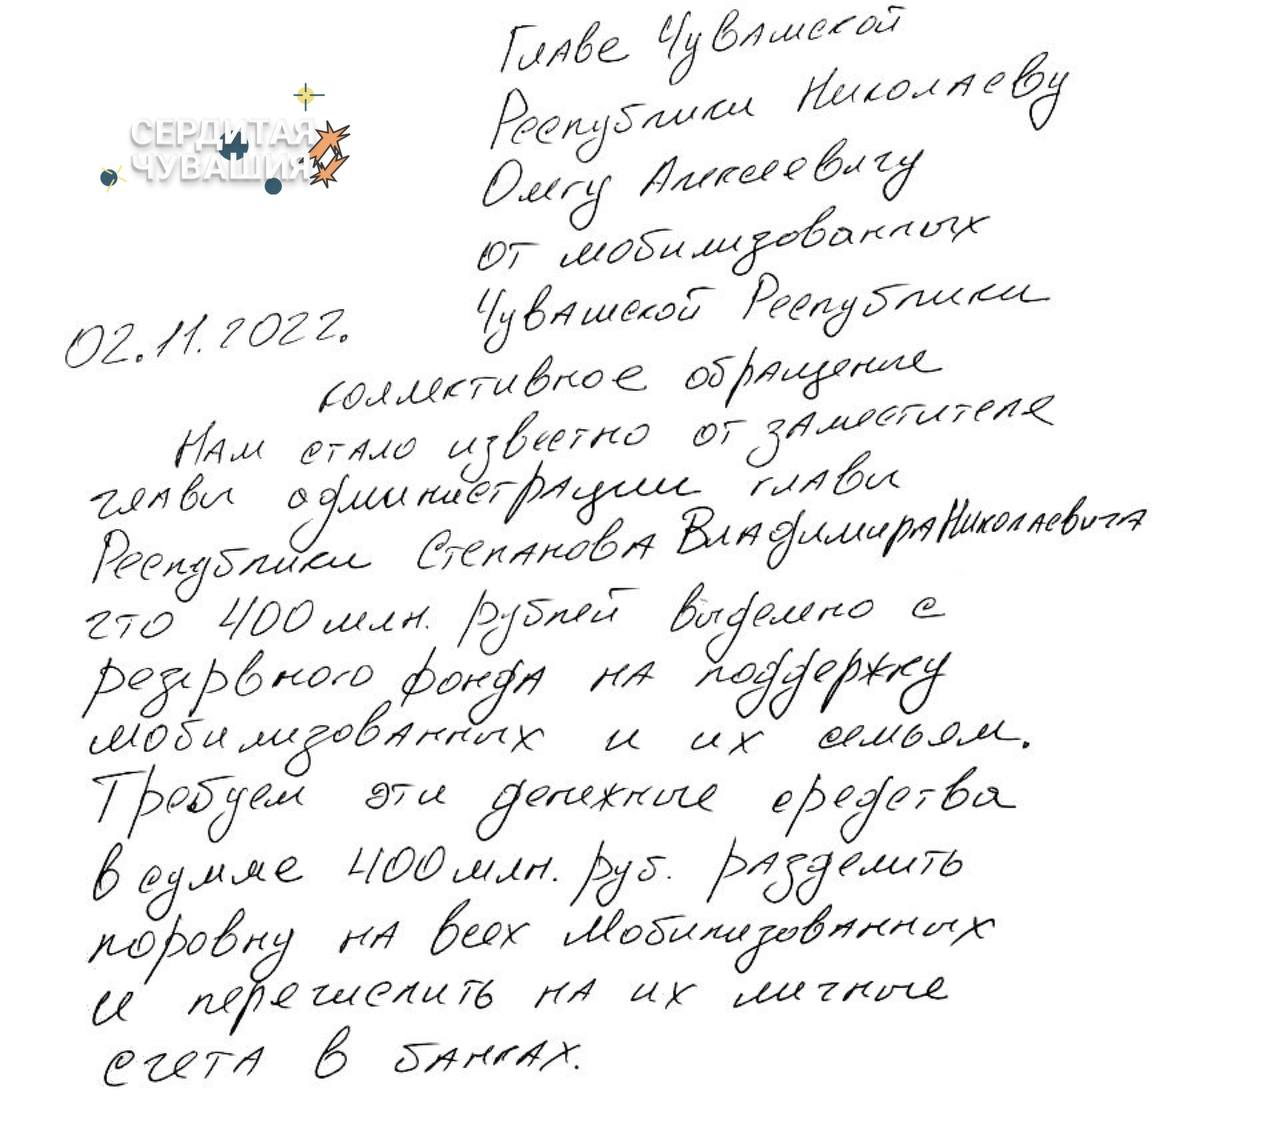 Главе Чувашской
СЕРДИТАЯ
ЧУВАШИЯ
Республики Николаеву
Олегу Алексеевичу
от мобилизованных
Чувашской Республики
02.11.2022.
коллективное обращение
Нам стало известно от заместителя
главы администрации главы
Республики Степанова Владимира Николаевича
что 400 млн. рублей выделено с
резервного фонда на поддержку
мобилизованных и их семьям.
Требуем эти денежные средства
в сумме 400 млн. руб. разделить
поровну на всех Мобилизованных
и перечислить на их личные
счета в банках.